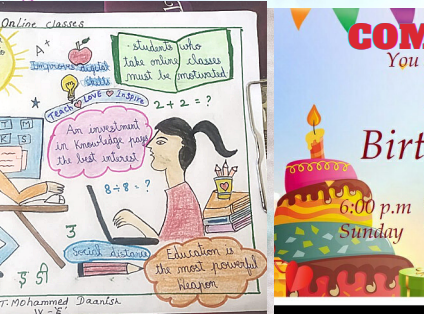 Online classes
A+
Improves digital
skills
students who
take online classes
must be motivated
Teach ♥ LOVE ♥ Inspire
2 + 2 = ?
An investment
in Knowledge pays
the best interest
8 ÷ 8 = ?
social distance
Education is
the most powerful
Weapon
T. Mohammed Daanish
IV - 'E'
COM
You
Birt
6:00 p.m
Sunday